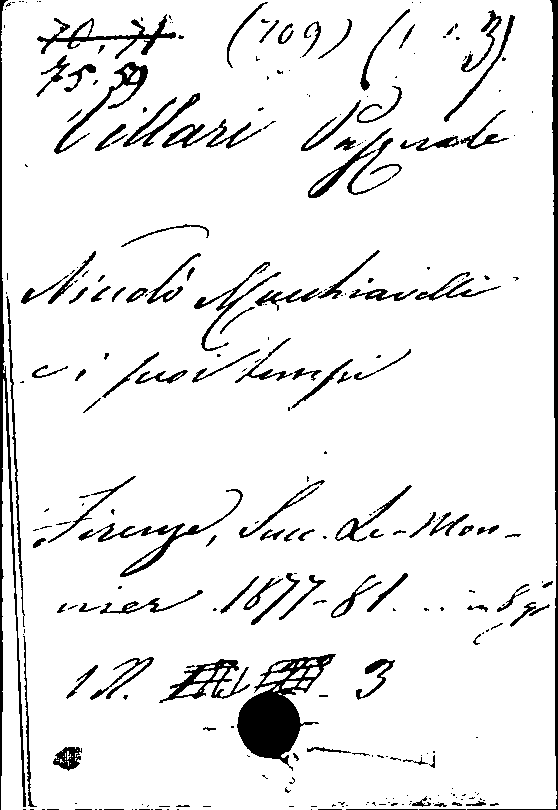 70, 71. (709) (1 1. 3)
75. 59
Villari Pasquale
Niccolò Macchiavelli
e i suoi tempi
Firenze, Succ. Le-Mon-
nier 1877-81. .. in 8 gr
1 3